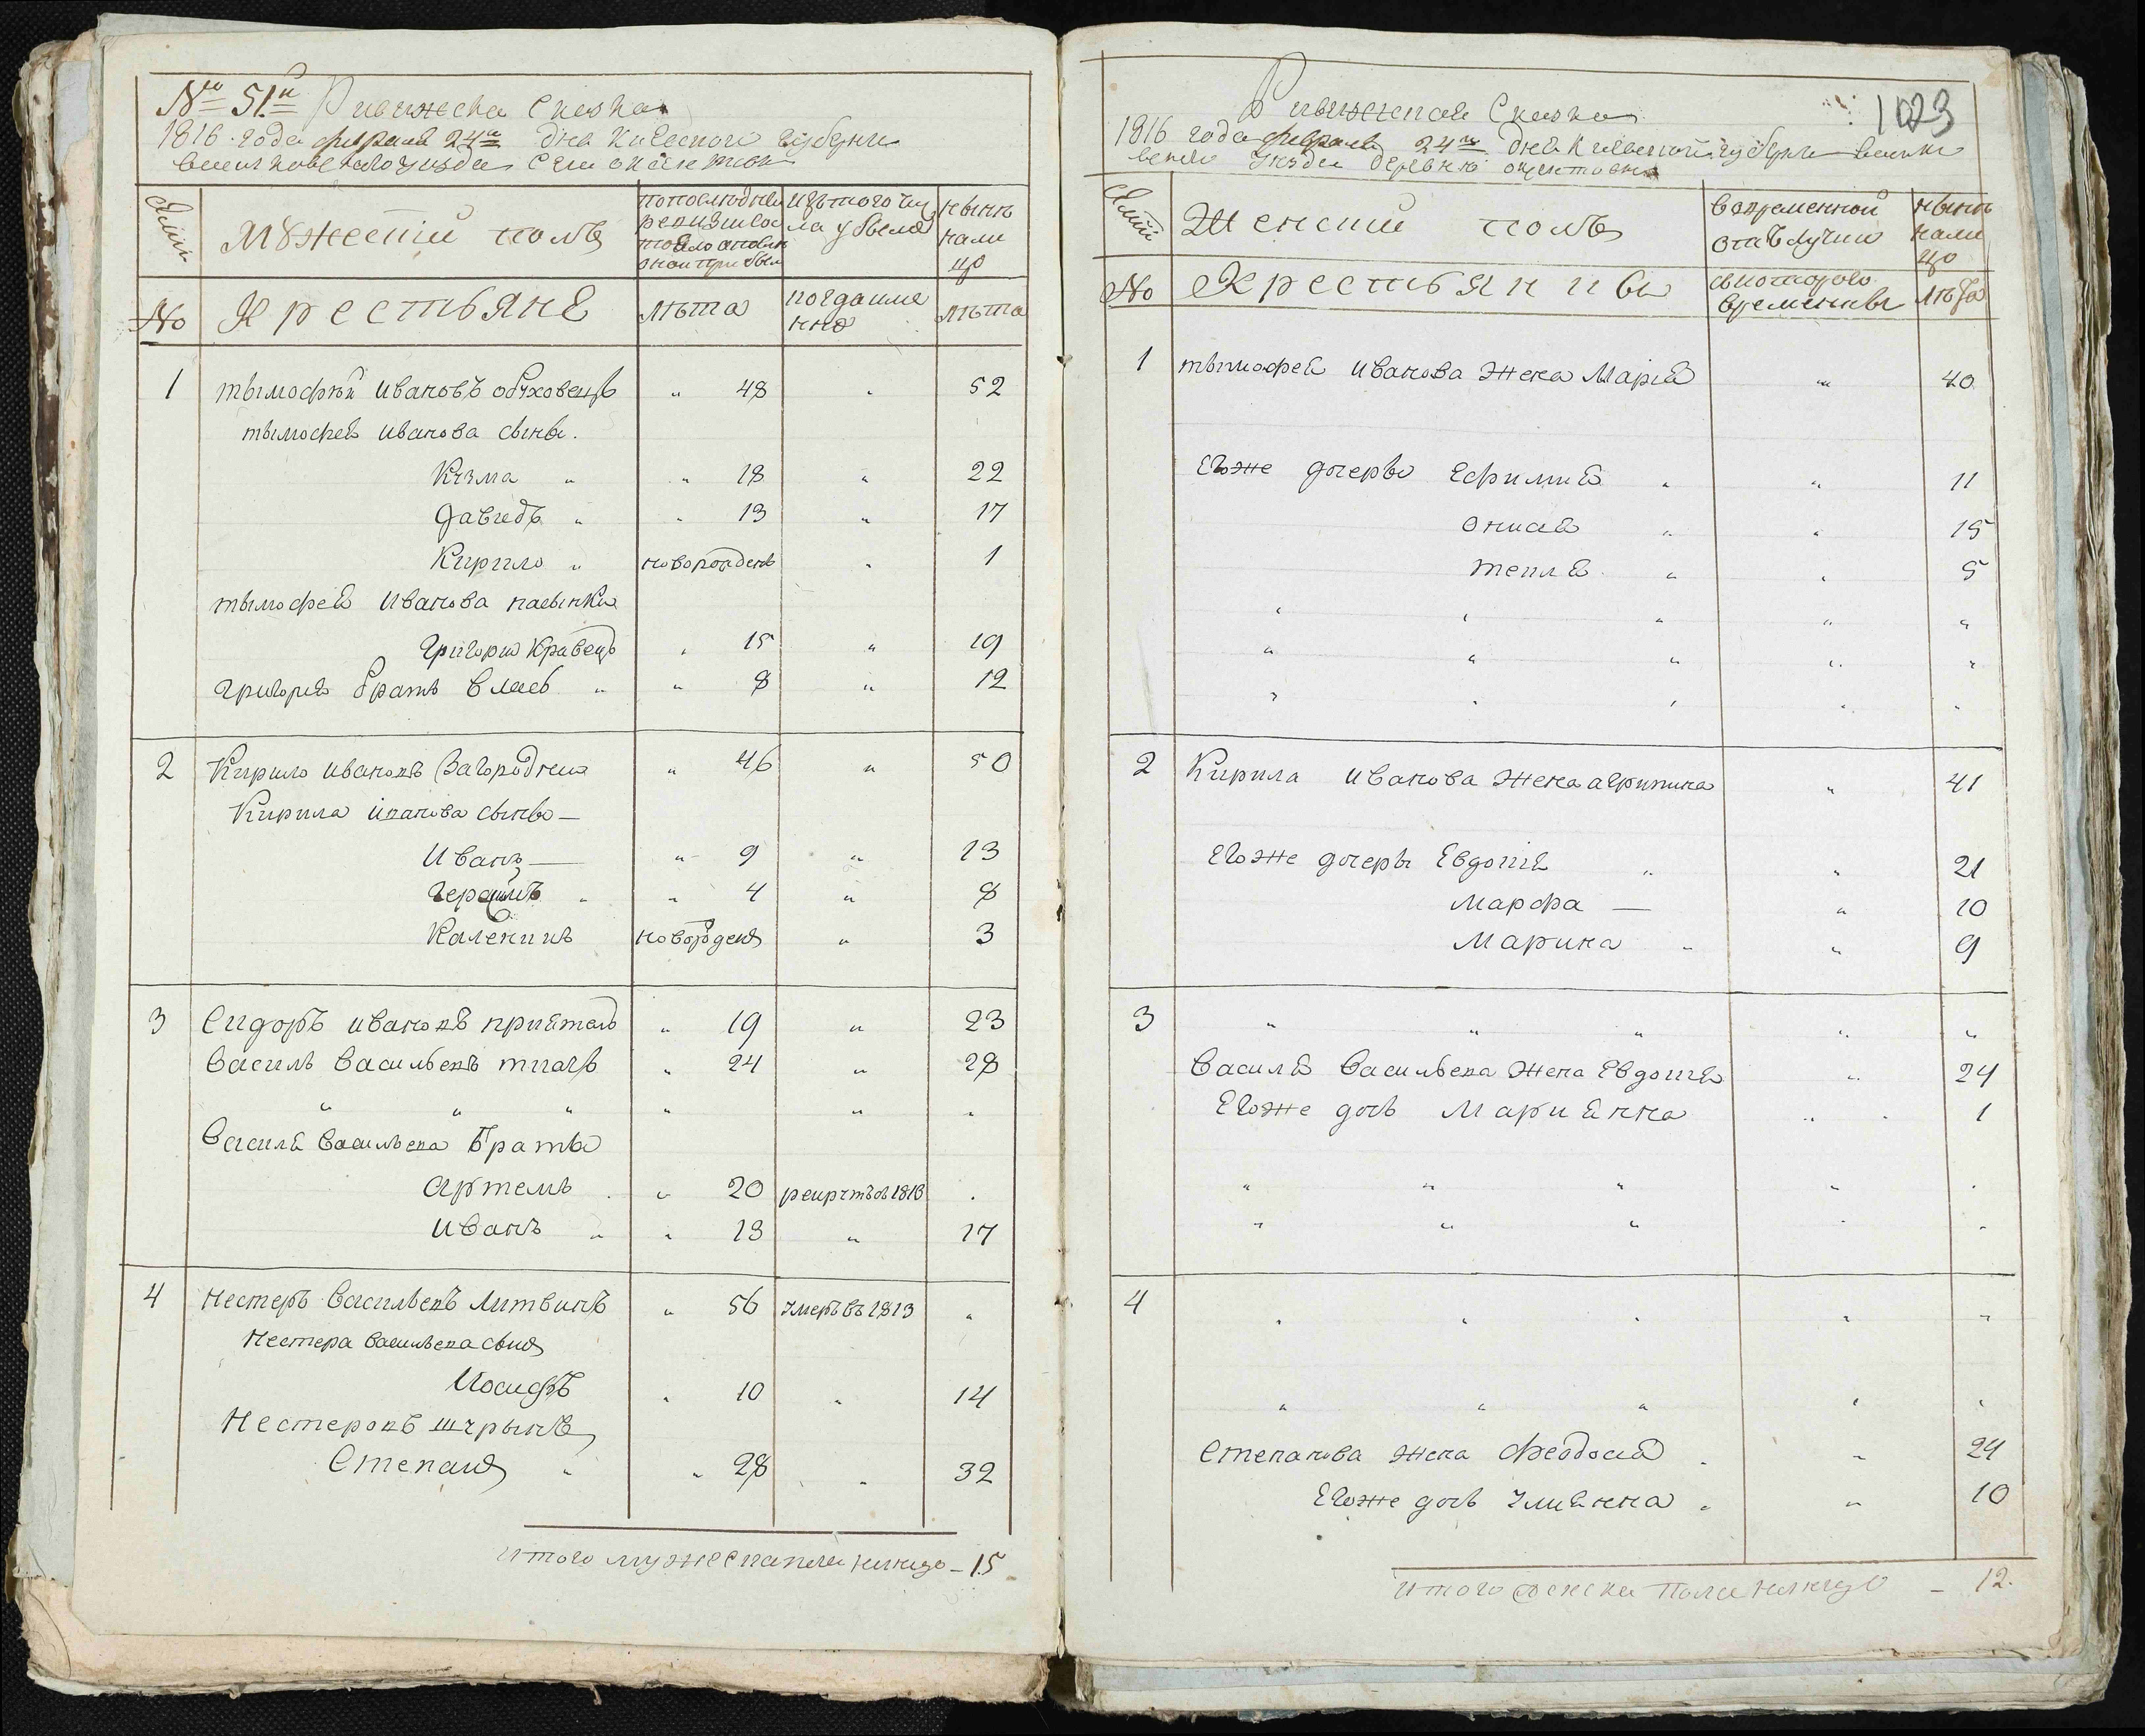 № 51й Ривижеска Сказка
1816 года февраля 24го дня Киевской губернии
№
Мужеский полъ
Крестьяне
лѣта
лѣта
1 тымофѣй Ивановъ обуховецъ " 48 " 52
тымофея Иванова сыны
Кузма " " 18 " 22
Давидъ " " 13 " 17
Кирило " новорожденъ " 1
тымофея Иванова пасынки
Григорий Кравецъ " 15 " 19
григорія братъ власъ " " 8 " 12
2 Кирило Ивановъ Загородний " 46 " 50
Кирила Иванова сыны —
Иванъ — " 9 " 13
герасимъ " " 4 " 8
Каленикъ новорожденъ " 3
3 Сидоръ Ивановъ приятель " 19 " 23
Василь Васильевъ ткачъ " 24 " 28
" " " " " "
Василя Васильева Браты
Артемъ " " 20 рекрутъ въ 1813 "
Иванъ " " 13 " 17
4 Нестеръ Васильевъ Литвинъ " 56 умеръ въ 1813 "
Нестера Васильева сынъ
Иосифъ " 10 " 14
Нестеровъ шурынъ
Степанъ " " 28 " 32
итого мужеска пола налицо – 15
1023
Ривижская Сказка
1816 года февраля 24го дня Киевской губернии
Женский полъ
во временной отлучки
нынѣ налицо
№ Крестьянки
съ которого времены
лѣта
1 тымофея Иванова жена Марія " 40
Егоже дочеры Ефимия " " 11
Онися " " 15
текля " " 5
" " " " "
" " " " "
" " " " "
2 Кирила Иванова жена агрипина " 41
Егоже дочеры Евдокия " " 21
Марфа — " 10
Марина " " 9
3 " " " " "
Василя Васильева жена Евдокия " 24
Егоже дочь Мариянна " 1
" " " " "
" " " " "
4 " " " " "
" " " " "
Степанова жена Феодосия " " 24
Егоже дочь Улиянна " " 10
итого женска пола налицо – 12.